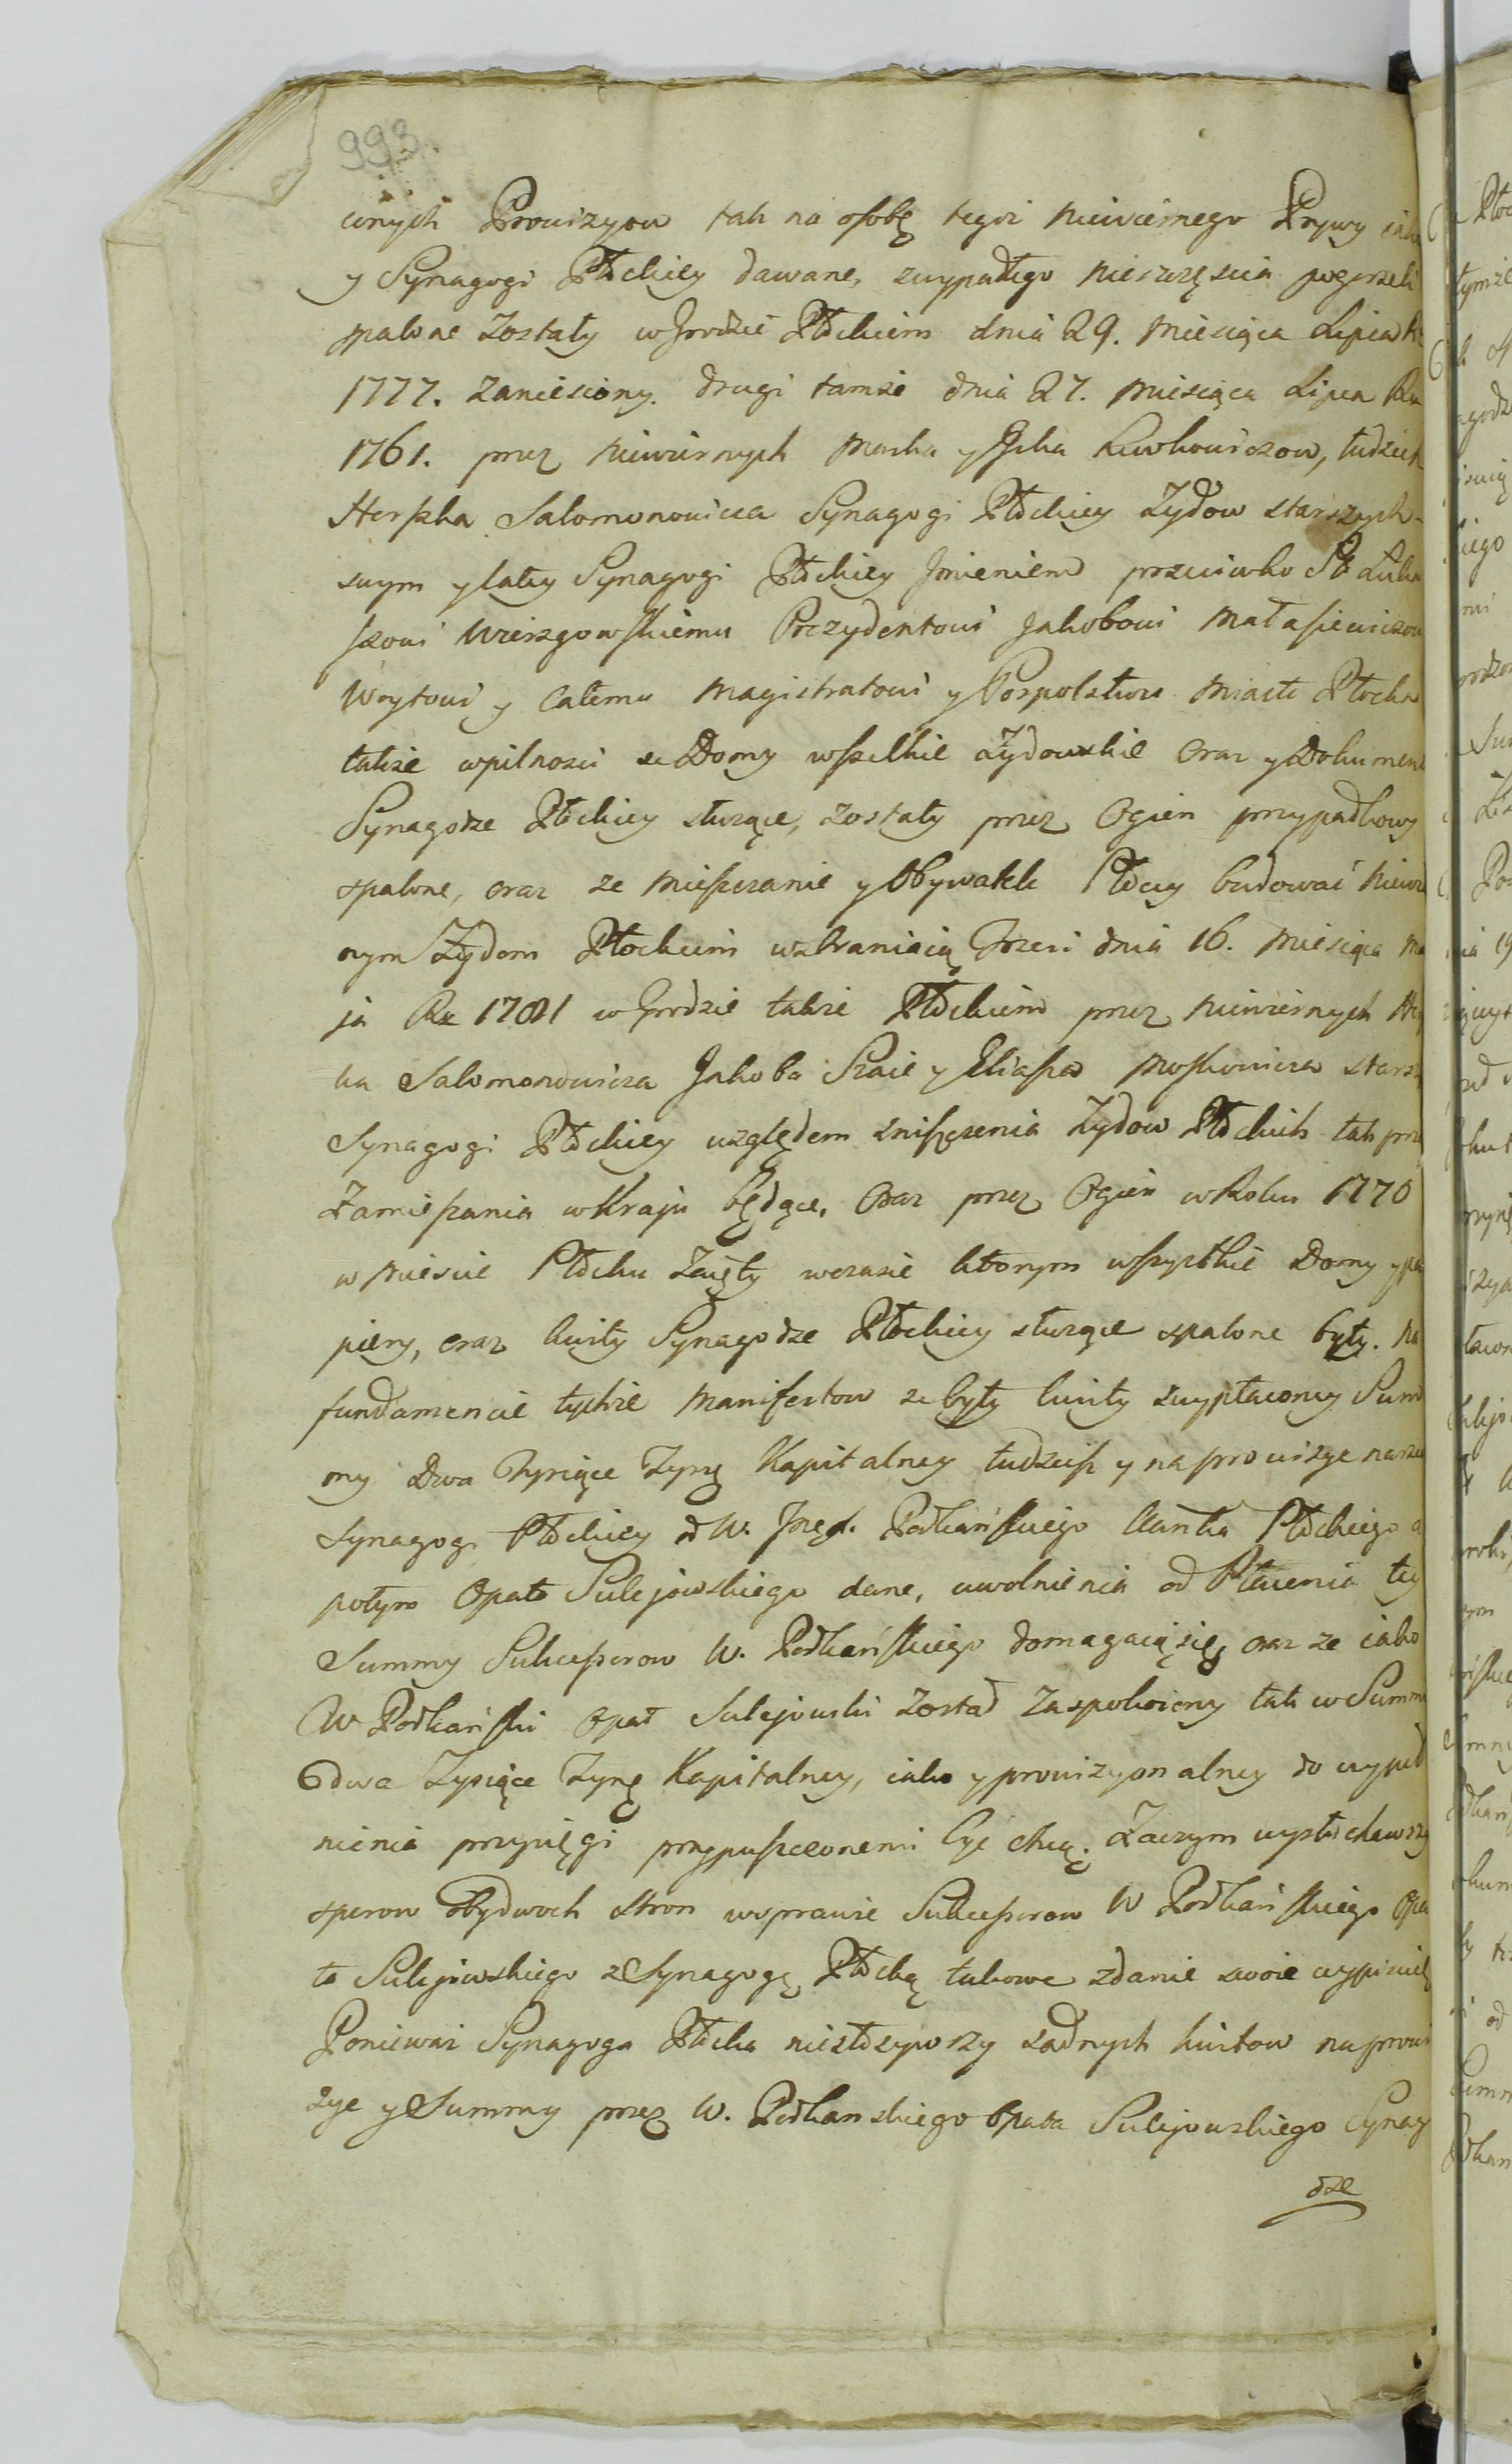 993.
conych Prowizyow tak na osobę tegoż niewiernego Prywy iako
y Synagogi Płockiey dawane, zwypadłego nieszczęscia pogorzeli
spalone zostały w Grodzie Płockiem dnia 29. Miesiąca Lipca R
1777. zaniesiony. drugi tamże dnia 27. Miesiąca Lipca Rku
1761. przez niewiernych Moska y Jcka Lewkowiczow, tudziesz
Herszka Salomonowicza Synagogi Płockiey Żydow starszych
swym y całey Synagogi Płockiey Jmieniem przeciwko Sł. Łuka
szowi Wierzgowskiemu Prezydentowi Jakobowi Matasiewiczow
Woytowi y całemu Magistratowi y Pospolstwu Miasta Płocka
także wpilnosci ze Domy wszelkie żydowskie oraz y Dokumen
Synagodze Płockiey służące, zostały przez Ogien przypadkowy
spalone, oraz ze Mieszczanie y Obywatele Płoccy budować niewie
nym Żydom Płockim wzbraniaią Trzeci dnia 16. Miesiąca Ma
ja Rku 1781 w Grodzie także Płockiem przez niewiernych Her
ka Salomonowicza Jakoba Szaie y Eliasza Moskowicza starsz
Synagogi Płockiey względem zniszczenia Żydow Płockich tak prze
Zamieszania w Kraju będące, oraz przez Ogien w Roku 1770
w Miescie Płocku zaięty wczasie ktorym wszystkie Domy y pa
piery, oraz kwity Synagodze Płockiey służące spalone były. Na
fundamencie tychże Manifestow ze były kwity zwypłaconey Sum
my Dwa Tysiące Zynę Kapitalney tudziesz y na prowizye narze
Synagogi Płockiey od W. Jmę. Podkańskiego Kan̄ka Płockiego a
potym Opata Sulejowskiego dane, uwolnienia od Płacenia tey
Summy Sukcessorow W. Podkańskiego domagaią się, oraz ze iako
W Podkański Opat Sulejowski został zaspokoiony tak w Summ
dwa Tysiące Zynę Kapitalney, iako y prowizyonalney do wypeł
nienia przysięgi przypuszczonemi byc chcą. Zaczym wysłuchawszy
sporow obydwoch stron w sprawie Sukcessorow W Podkańskiego Opa
ta Sulejowskiego z Synagogą Płocką takowe zdanie swoie wypisuię
Ponieważ Synagoga Płocka niezłozywszy żadnych kwitow na prowi
zye y Summy przez W. Podkanskiego Opata Sulejowskiego Synag
dze